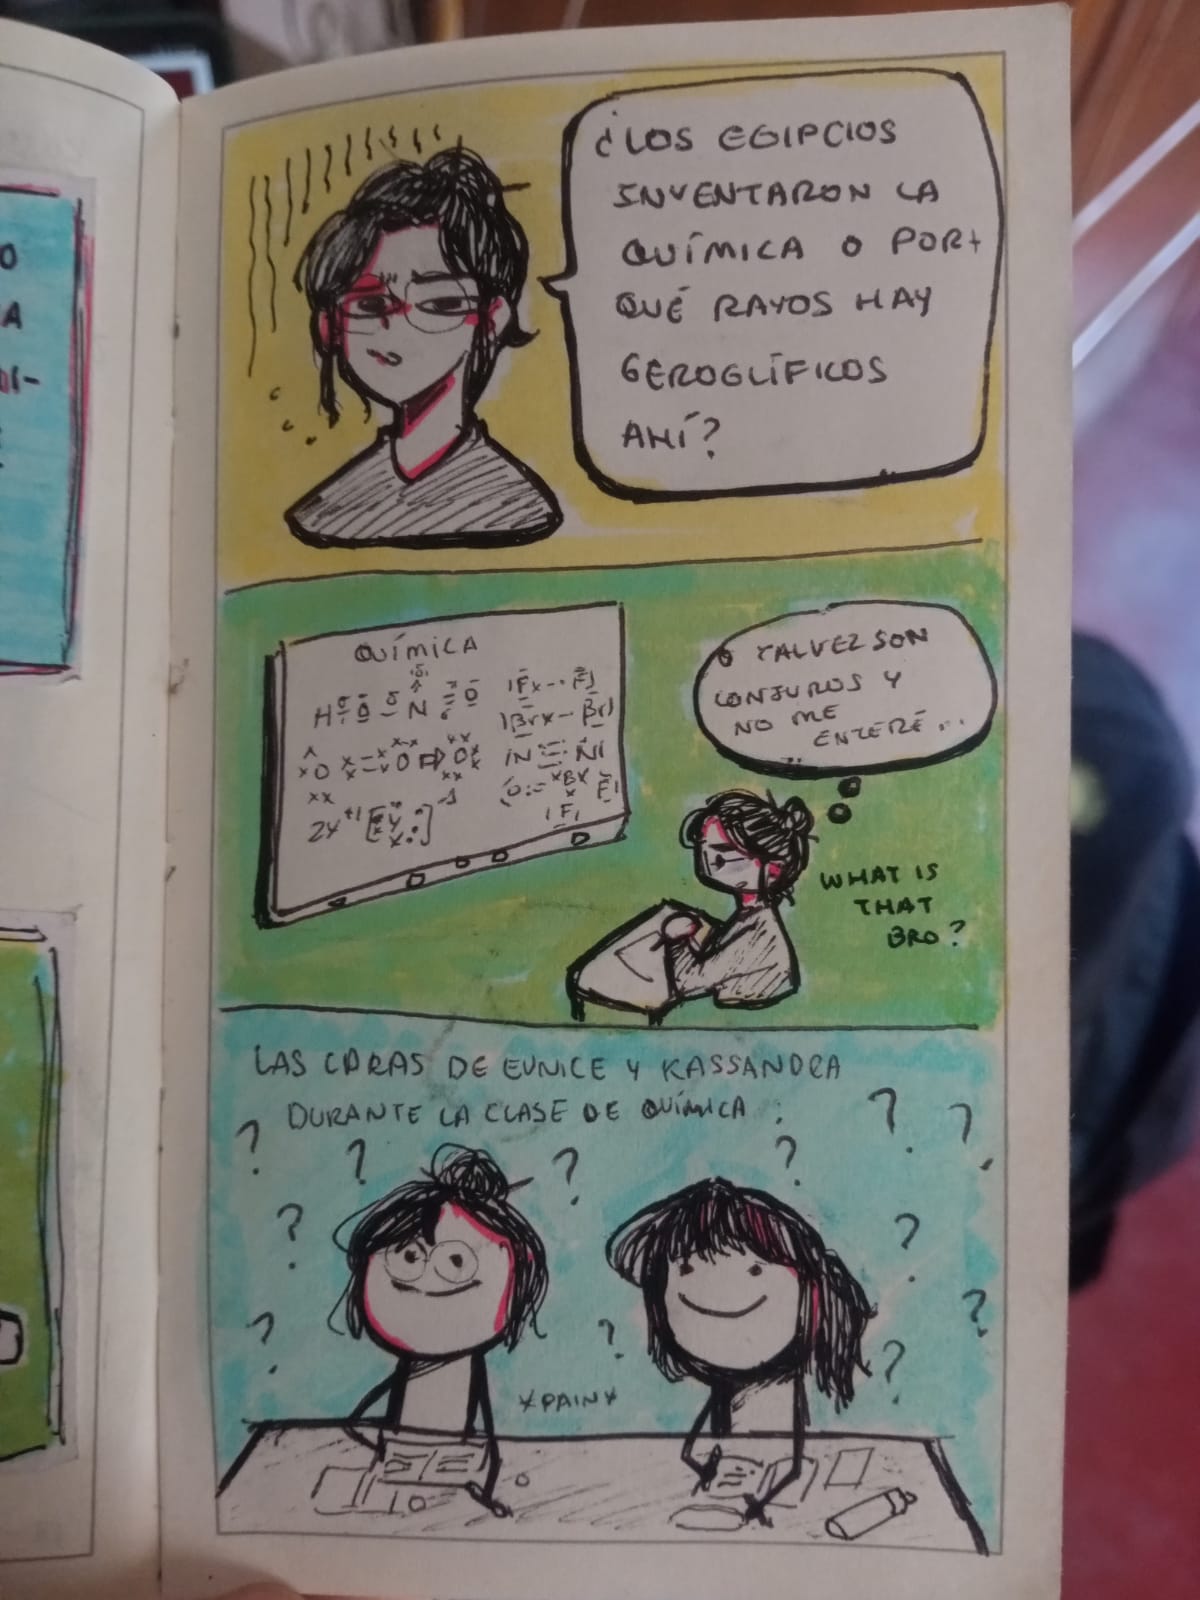 O
A
DI-
¿LOS EGIPCIOS
INVENTARON LA
QUÍMICA O POR
QUÉ RAYOS HAY
GEROGLÍFICOS
AHÍ?
QUÍMICA
O TALVEZ SON
CONJUROS Y
NO ME
ENTERÉ...
WHAT IS
THAT
BRO?
LAS CARAS DE EUNICE Y KASSANDRA
DURANTE LA CLASE DE QUÍMICA:
? ? ? ? ? ?
? ?
? ? ? ?
*PAIN*